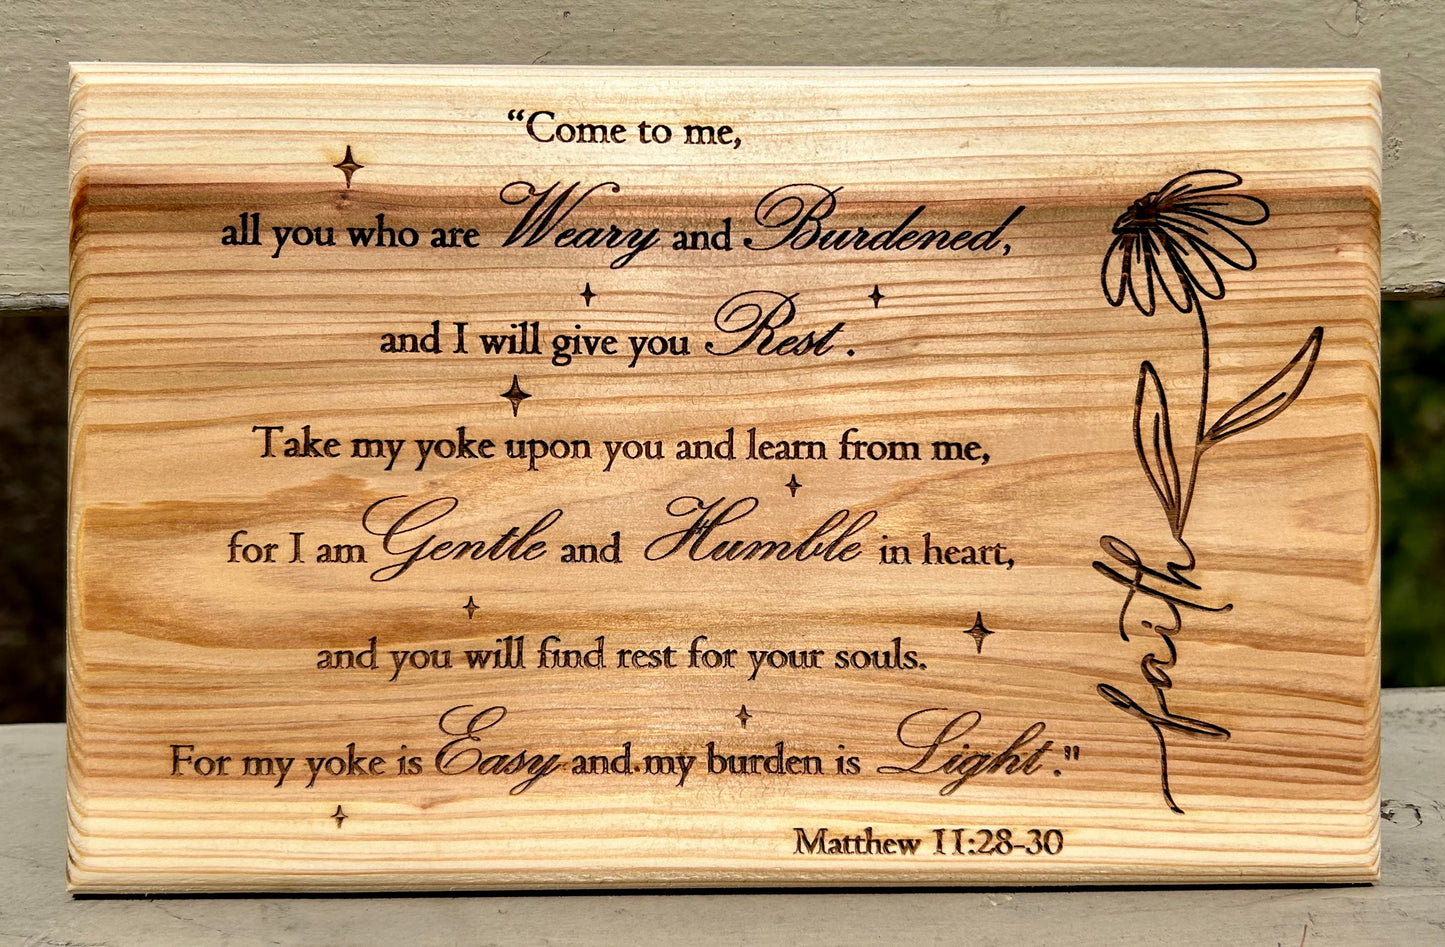 “Come to me,
all you who are Weary and Burdened,
and I will give you Rest.
Take my yoke upon you and learn from me,
for I am Gentle and Humble in heart,
and you will find rest for your souls.
For my yoke is Easy and my burden is Light."
Matthew 11:28-30
faith